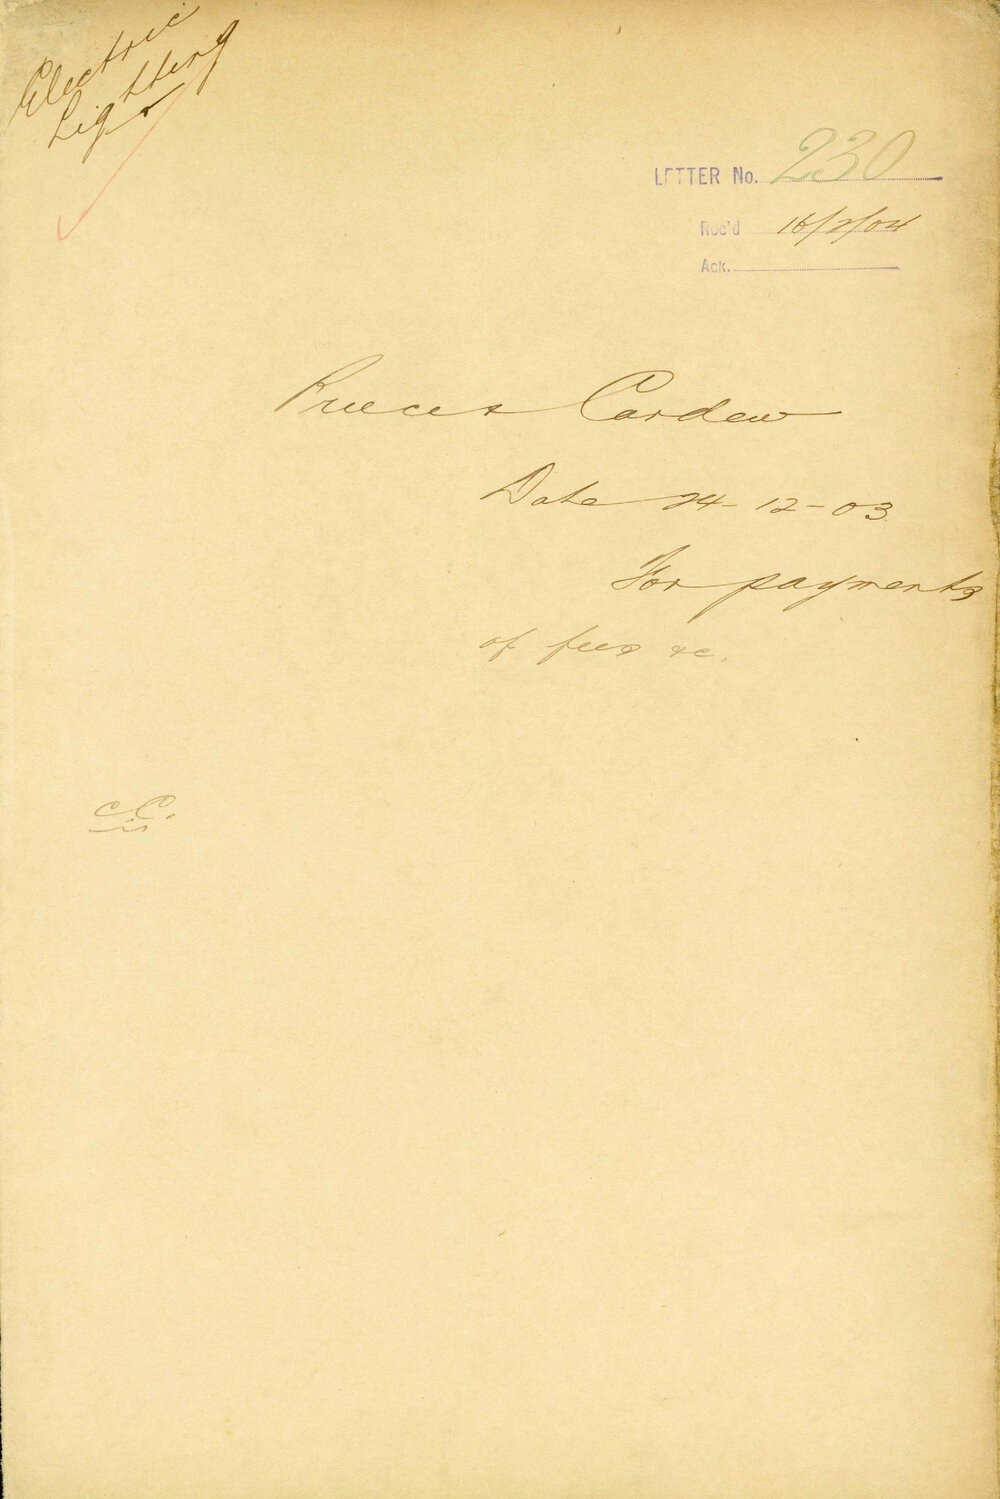 Electric
Lighting
LETTER No. 230
Rec'd 16/2/04
Ack.
Preece & Cardew
Date 24-12-03
For payments
of fees &c.